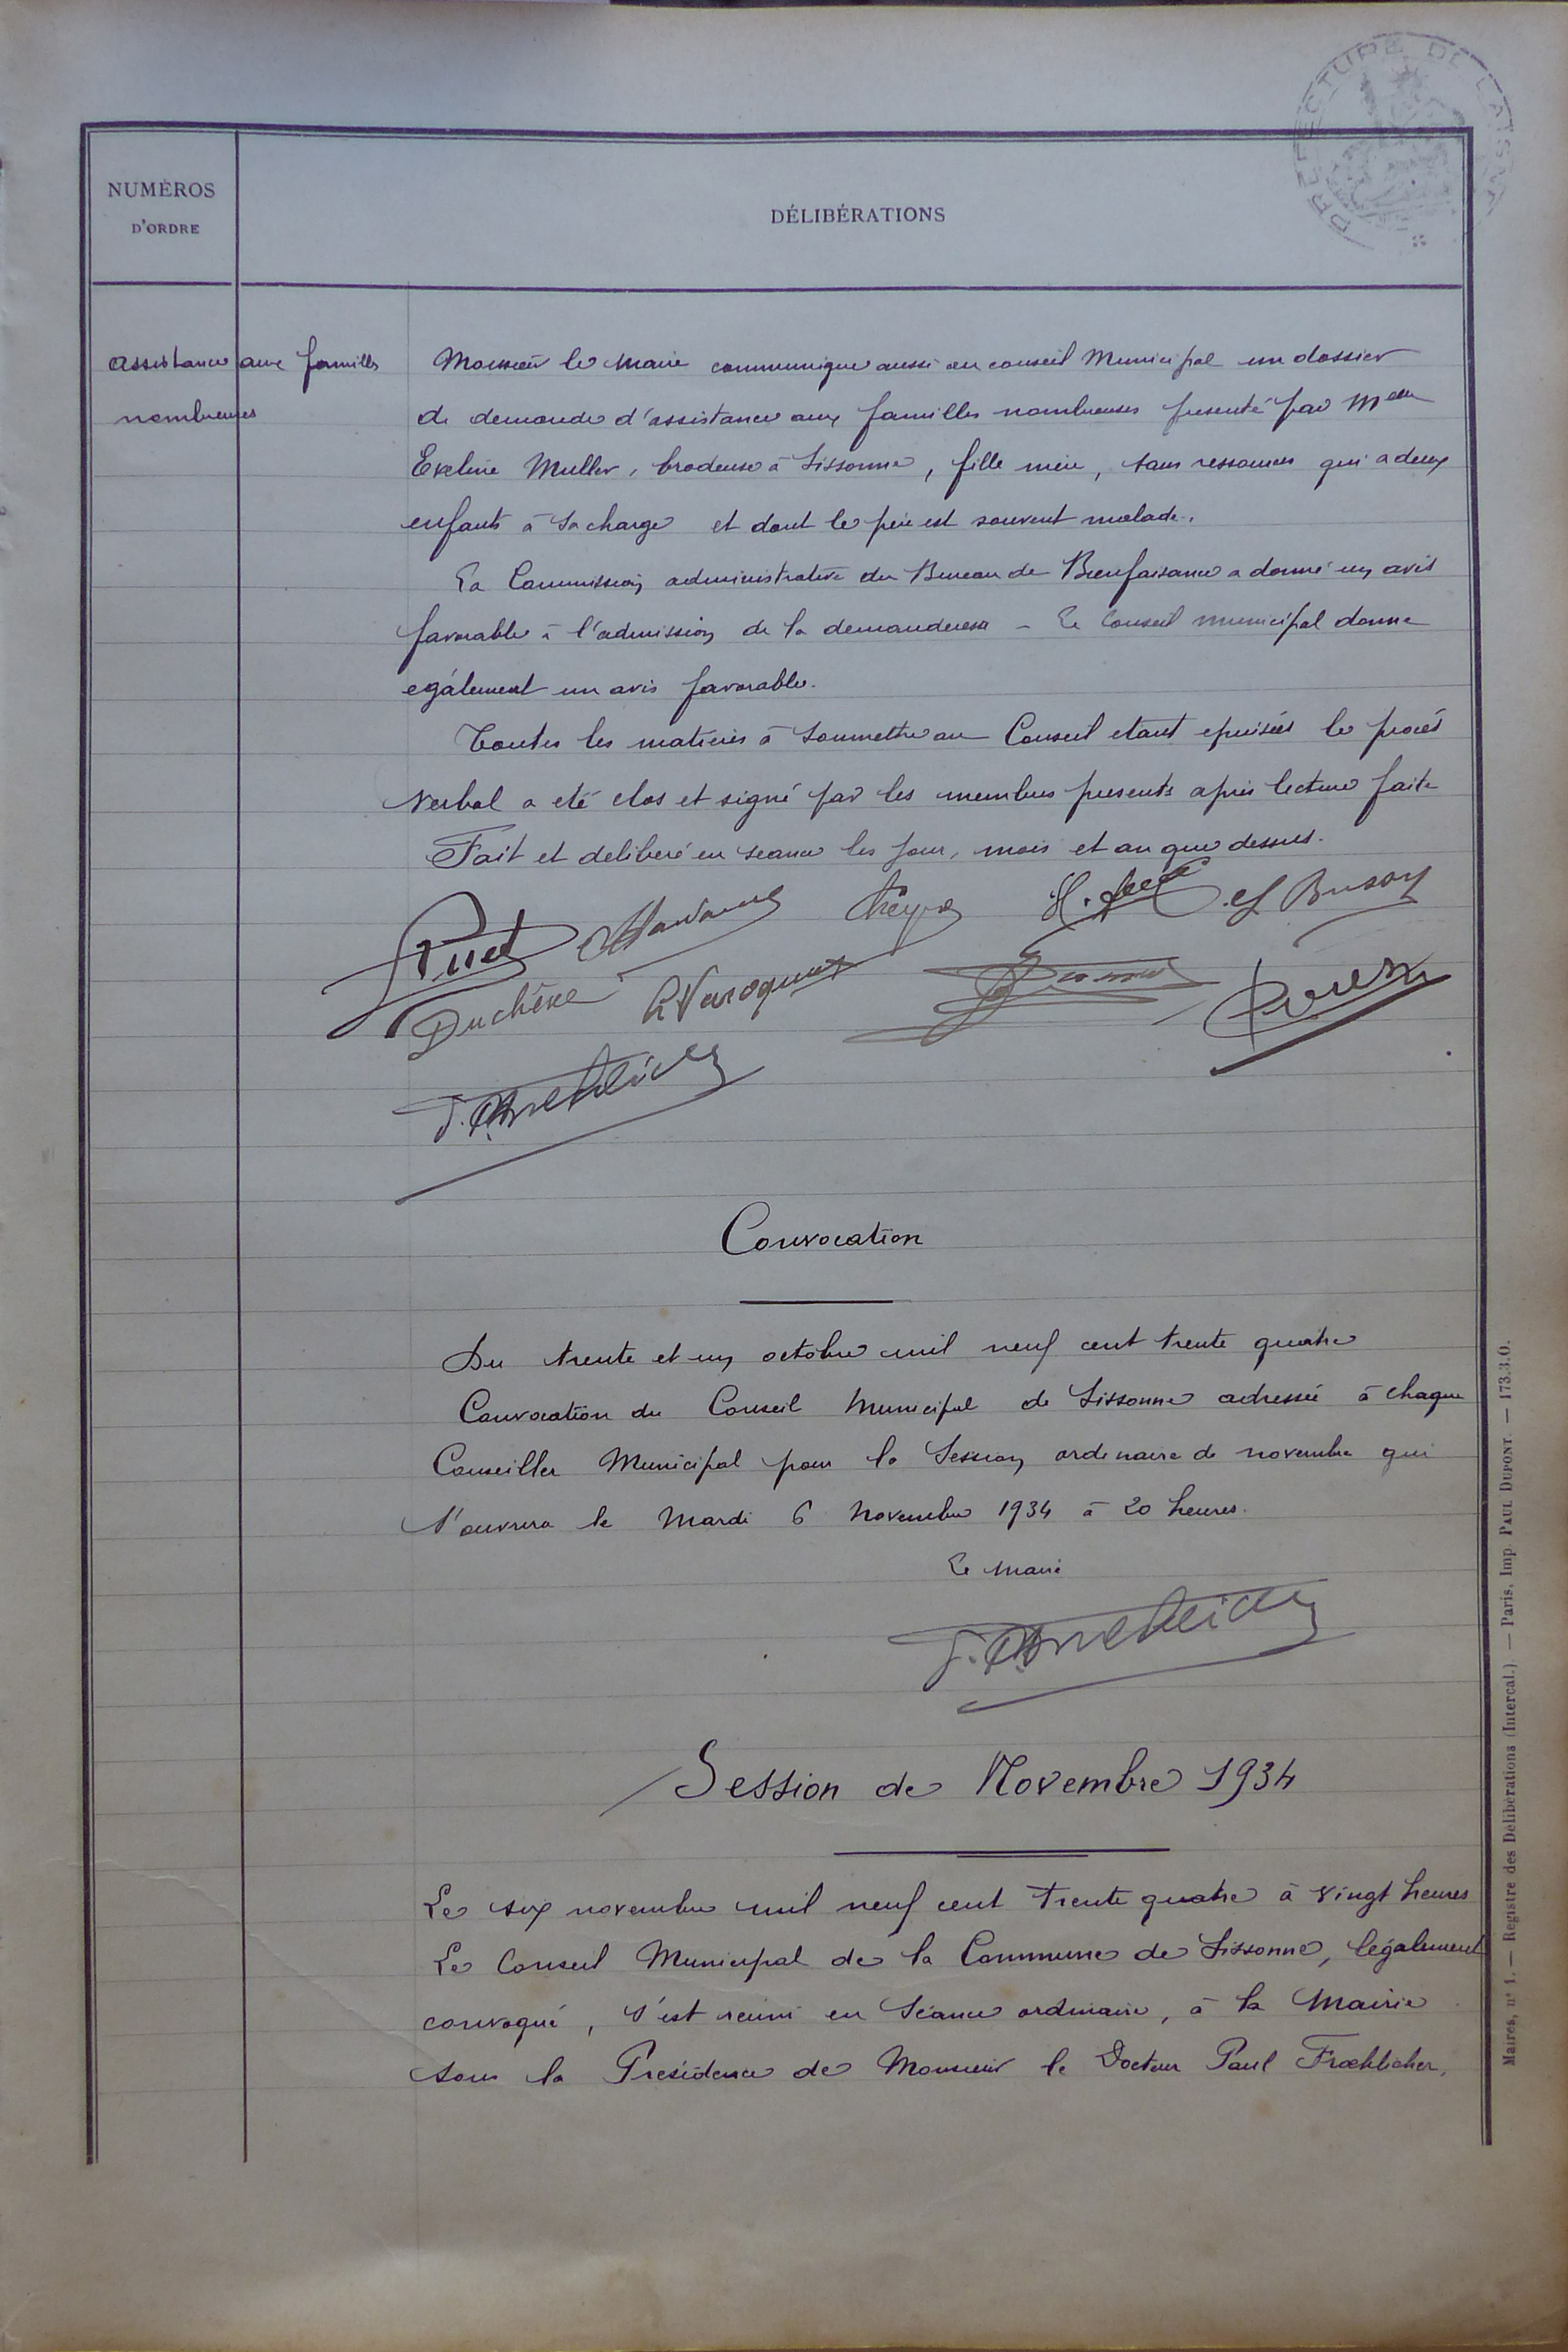 PRÉFECTURE DE L'AISNE
NUMÉROS
D'ORDRE
DÉLIBÉRATIONS
Assistance aux familles
nombreuses
Monsieur le Maire communique aussi au conseil Municipal un dossier
de demande d'assistance aux familles nombreuses presenté par Melle
Eveline Muller, brodeuse à Sissonne, fille mère, sans ressources qui a deux
enfants à sa charge et dont le père est souvent malade.
La Commission administrative du Bureau de Bienfaisance a donné un avis
favorable à l'admission de la demanderesse - Le Conseil municipal donne
également un avis favorable.
Toutes les matières à soumettre au Conseil etant epuisées le procès
Verbal a eté clos et signé par les membres presents après lecture faite
Fait et deliberé en seance les jour, mois et an que dessus.
Duchêne
Convocation
Du trente et un octobre mil neuf cent trente quatre
Convocation du Conseil Municipal de Sissonne adressée à chaque
Conseiller Municipal pour la Session ordinaire de novembre qui
s'ouvrira le Mardi 6 Novembre 1934 à 20 heures.
Le Maire
Session de Novembre 1934
Le six novembre mil neuf cent trente quatre à vingt heures
Le Conseil Municipal de la Commune de Sissonne, légalement
convoqué, s'est reuni en Séance ordinaire, à la Mairie
sous la Présidence de Monsieur le Docteur Paul Froehlicher,
Maires, n° 1. — Registre des Délibérations (Intercal.) — Paris, Imp. PAUL DUPONT. — 173.3.0.